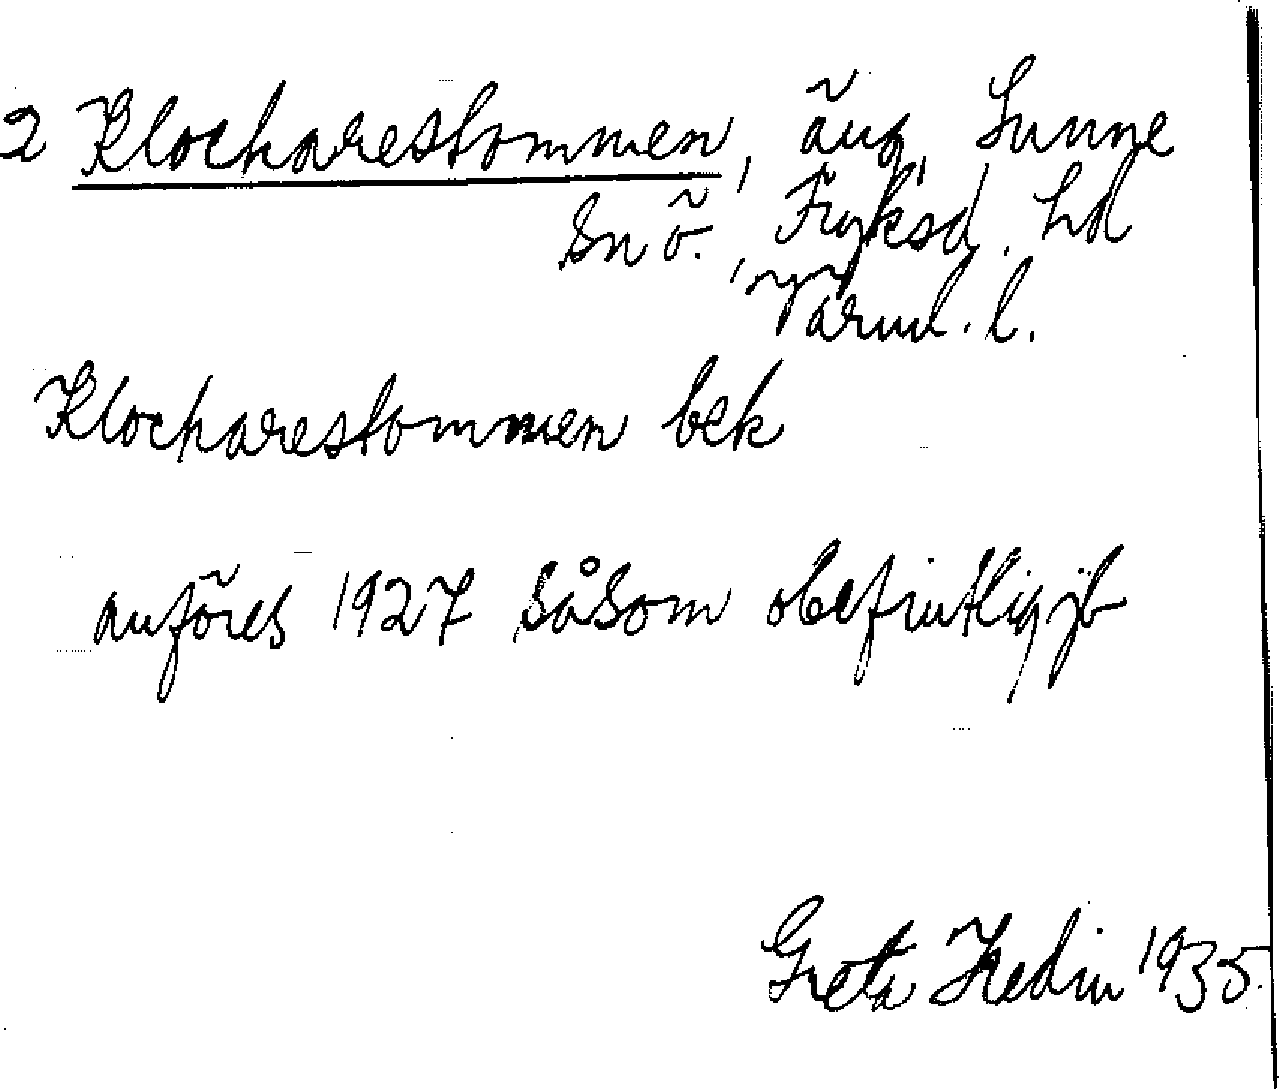 2 Klockarestommen, äng, Sunne
sn ö., Fryksd. hd
, Värml. l.
Klockarestommen bek
anföres 1927 såsom obefintlig jb
Greta Hedin 1935.